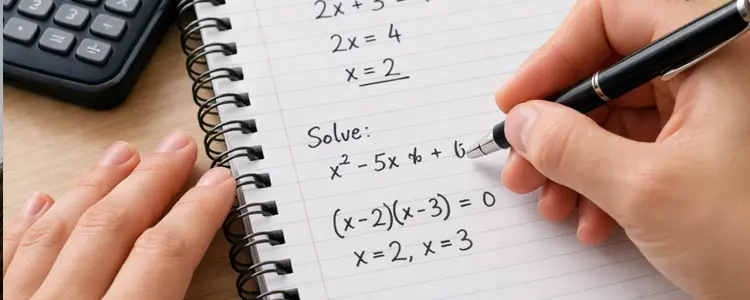 2x + 3 =
2x = 4
x = 2
Solve:
x² - 5x % +
(x-2)(x-3) = 0
x = 2, x = 3